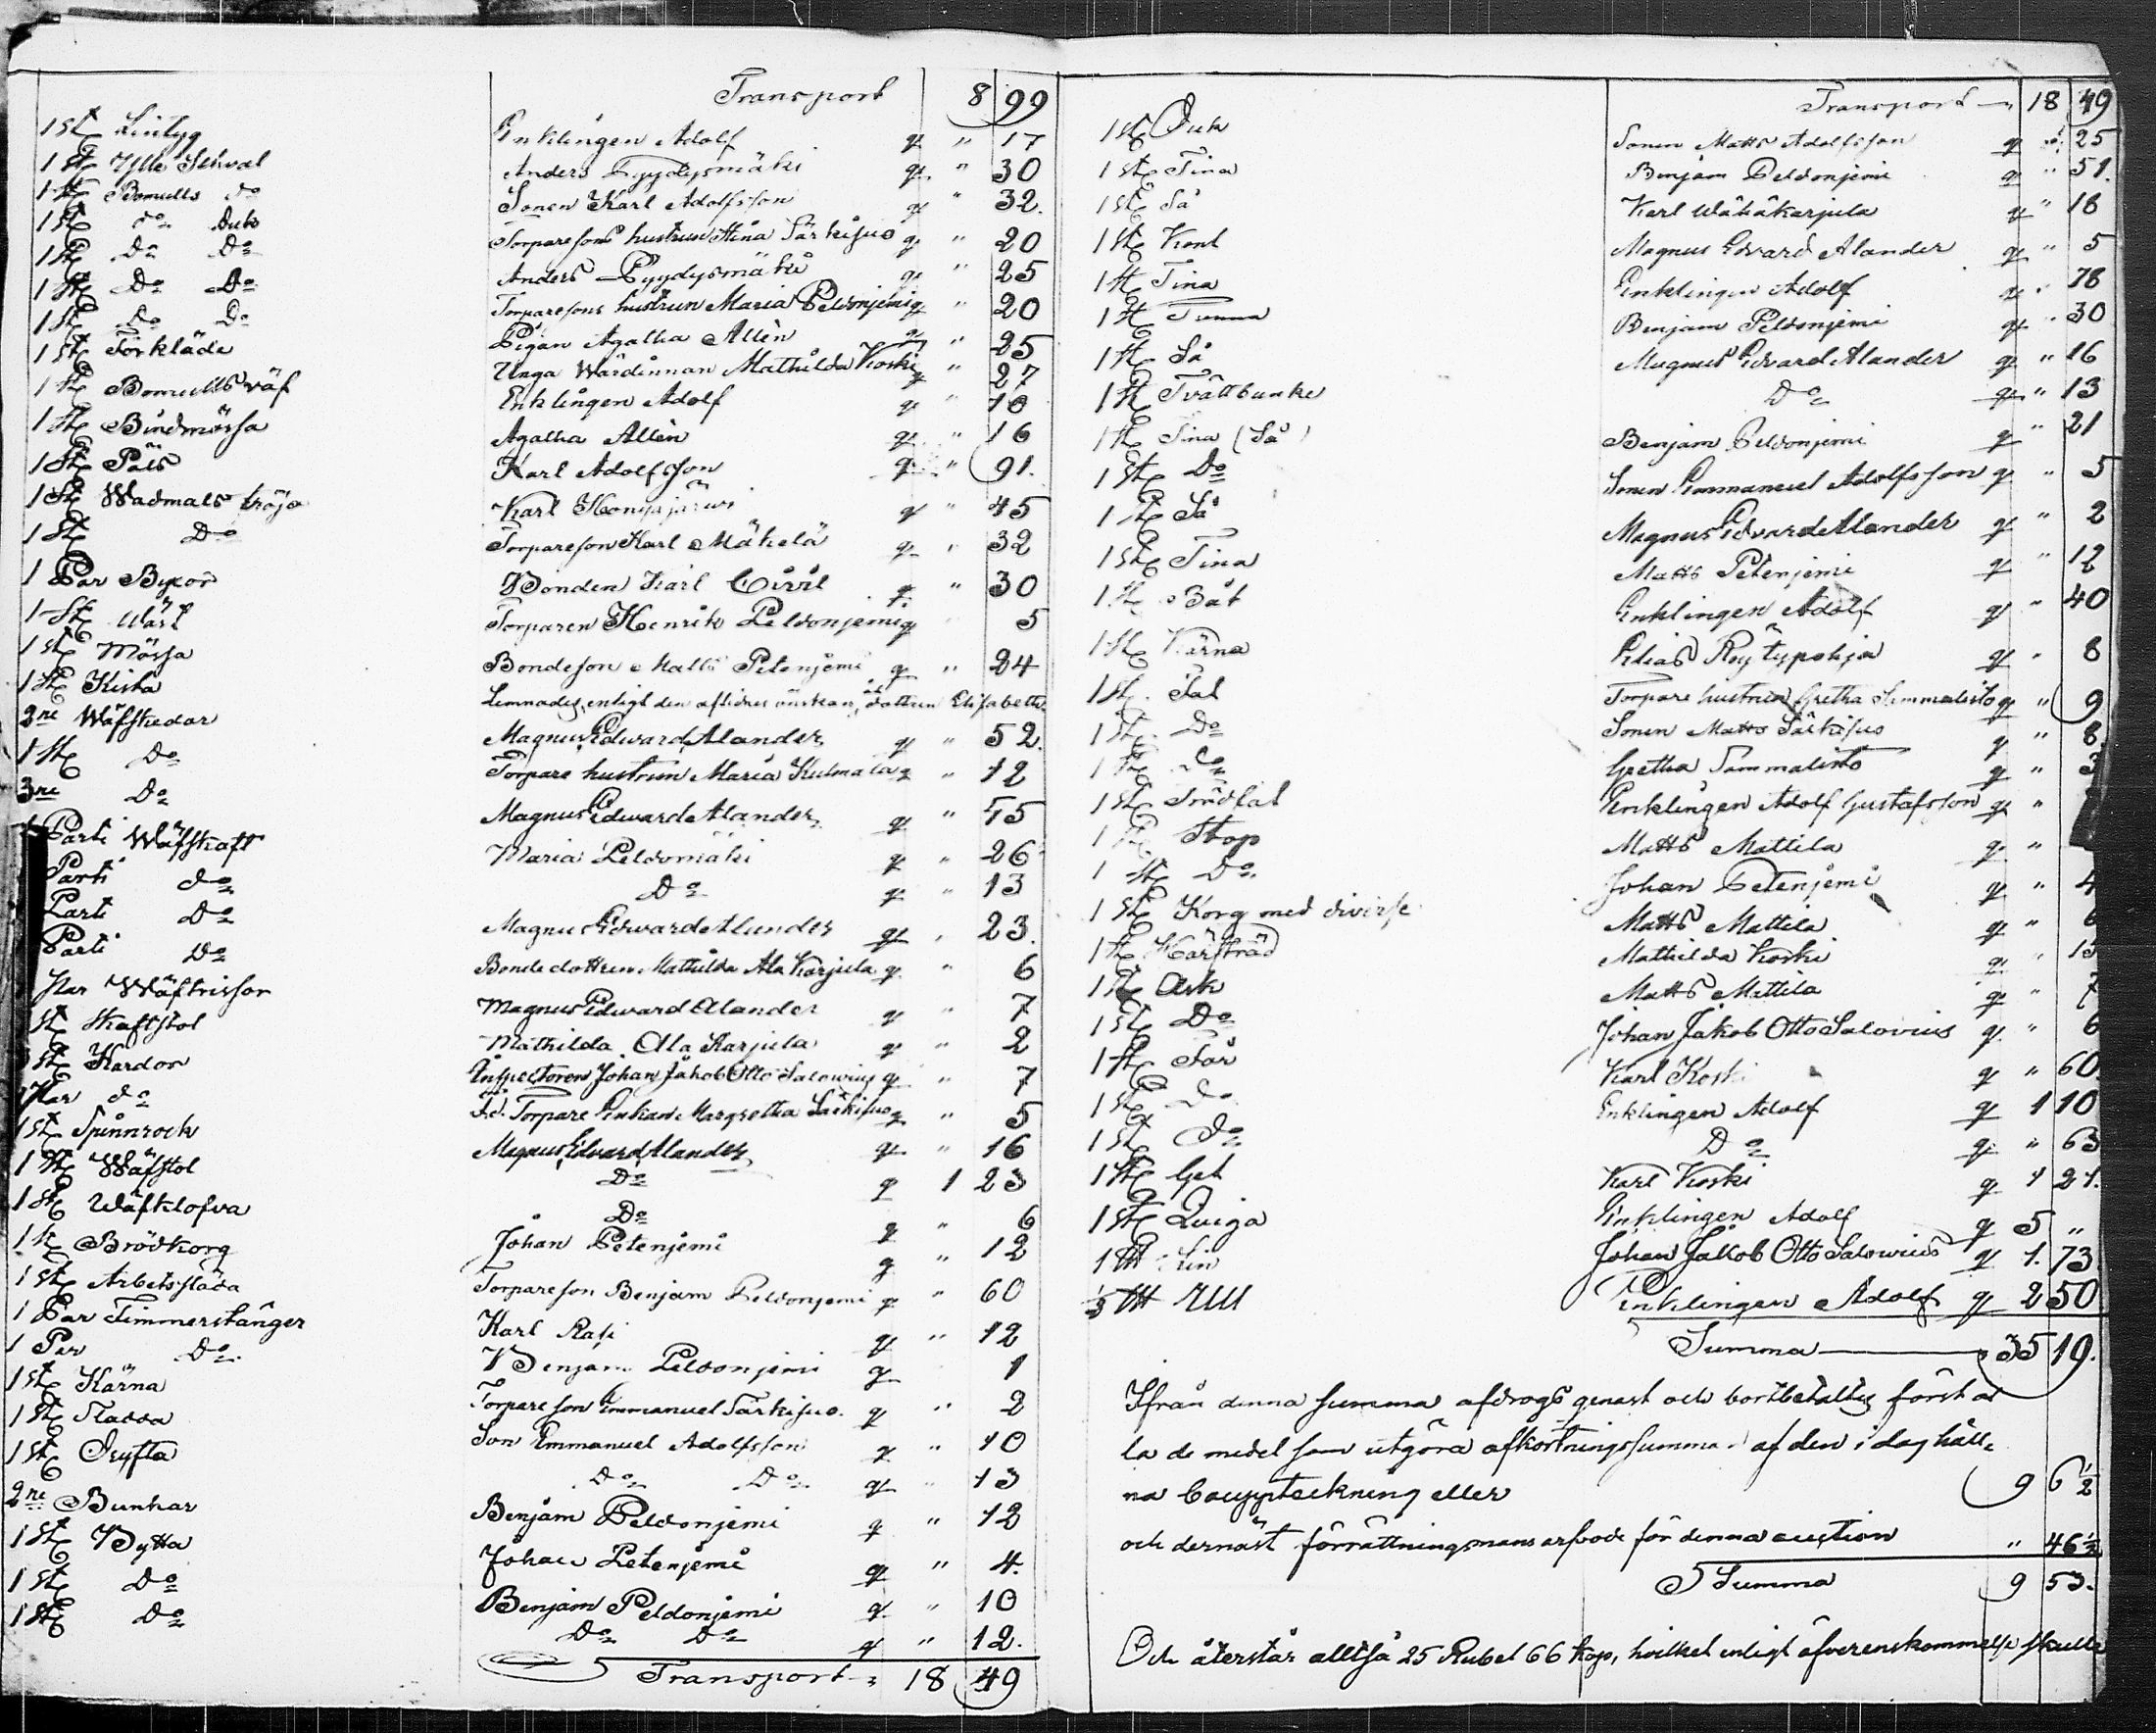 Transport 8 99
1 st Lintyg Enklingen Adolf " 17
1 st Ylle Schval Anders Pyydysmäki " 30
1 st Bomulls do Sonen Karl Adolfsson " 32.
1 st do Duk Torparesons hustrun Stina Särkijus " 20
1 st Do Do Anders Pyydysmäki " 25
1 st Do Do Torparesons hustrun Maria Peldonjemi " 20
1 st Do Do Pigan Agatha Allèn " 25
1 st Förkläde Unga Wärdinnan Mathilda Koski " 27
1 st Bomulls väf Enklingen Adolf " 10
1 st Bindmössa Agatha Allèn " 16
1 st Päls Karl Adolfsson " 91.
1 st Wadmals tröja Karl Honkajärwi " 45
1 st Do Torpareson Karl Mäkelä " 32
1 Par Byxor Bonden Karl " 30
1 st Wäst Torparen Henrik Peldonjemi 5
1 st Mössa Bondeson Matts Petenjemi " 24
1 st Kista Lemnades, enligt den aflidnes önskan, åt dottren Elisabeth.
2ne Wäfskedar Magnus Edward Alander " 52.
1 st Do Torpare hustrun Maria Kulmala " 12
3ne Do Magnus Edward Alander " 55
Parti Wäfskaft Maria Peldomäki " 26
Parti do Do " 13
Parti Do Magnus Edward Alander " 23.
Parti Do Bondedottren Mathilda Ala Karjula " 6
Par Wäftrissor Magnus Edward Alander " 7
st Skaftstol Mathilda Ala Karjula " 2
st Kardor Inspectoren Johan Jakob Otto Salowius " 7
Par do Torpare Enkan Margretha Särkijus " 5
1 st Spinnrock Magnus Edward Alander " 16
1 st Wäfstol Do 1 23
1 st Wäfklofva Do " 6
1 st Brödkorg Johan Petenjemi " 12
1 st Arbetssläda Torpareson Benjam Peldonjemi " 60
1 Par Timmerstänger Karl Rasi " 12
1 Par Do Benjam Peldonjemi 1
1 st Kärna Torpareson Emmanuel Särkijus " 2
1 st Sladda Son Emmanuel Adolfsson " 10
1 st Do Do " 13
2ne Bunkar Benjam Peldonjemi " 12
1 st Bytta Johan Petenjemi " 4.
1 st Do Benjam Peldonjemi " 10
1 st Do Do Do " 12.
Transport 18 49
Transport 18 49
1 st Duk Sonen Matts Adolfsson " 25
1 st Tina Benjam Peldonjemi " 51.
1 st Så Karl Wähäkarjula " 18
1 st Magnus Edvard Alander " 5
1 st Tina Enklingen Adolf " 78
1 st Tunna Benjam Peldonjemi " 30
1 st Så Magnus Edvard Alander " 16
1 st Tvättbunke Do " 13
1 st Tina (Så) Benjam Peldonjemi " 21
1 st Do Sonen Emmanuel Adolfsson " 5
1 st Så Magnus Edvard Alander " 2
1 st Tina Matts Petenjemi " 12
1 st Båt Enklingen Adolf " 40
1 st Kärna Elias Röytypohja " 8
1 st Fat Torpare hustrun Gretha Sammalisto " 9
1 st Do Sonen Matts Särkijus " 8
1 st Do Gretha Sammalisto " 3
1 st Trädfat Enklingen Adolf Gustafsson "
1 st Stop Matts Mattila "
1 st Do Johan Petenjemi " 4
1 st Korg med diverse Matts Mattila " 6
1 st Mathilda Koski " 13
1 st Ask Matts Mattila " 7
1 st Do Johan Jakob Otto Salovius " 6
1 st Får Karl Koski " 60.
1 st Do Enklingen Adolf 1 10
1 st Do Do " 63
1 st Get Karl Koski 1 21.
1 st Quiga Enklingen Adolf 5 "
1 Lin Johan Jakob Otto Salowius 1. 73
½ Ull Enklingen Adolf 2 50
Summa 35 19.
Ifrån denna summa afdrogs genast och bortbetaltes först al
la de medel som utgöra afkortningssumman af den i dag håll=
na bouppteckning eller 9 6½
och dernäst förrättningsmans arfvode för denna auction " 46½
Summa 9 53.
Och återstår alltså 25 Rubel 66 kop, hvilket enligt öfverenskommelse skulle